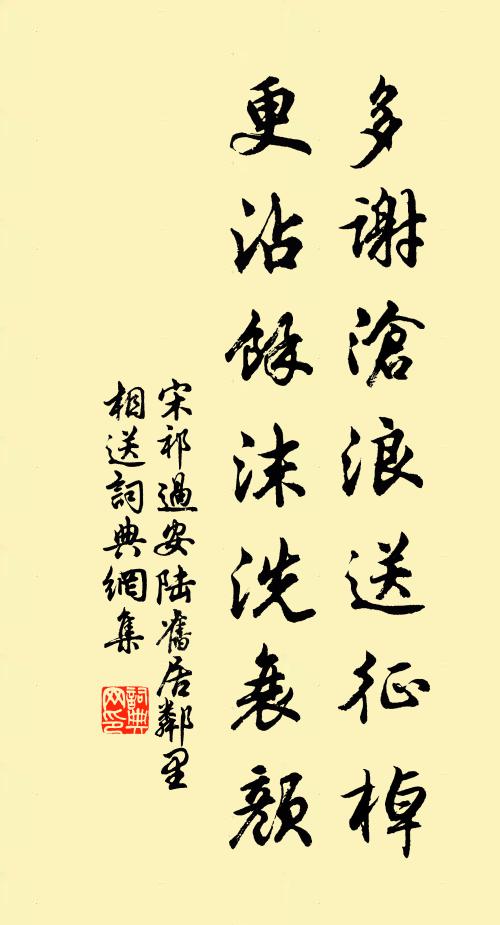 多謝滄浪送征棹
更沾餘沫洗衰顏
宋祁過安陸舊居鄰里
相送詞典網集
詞典
网印